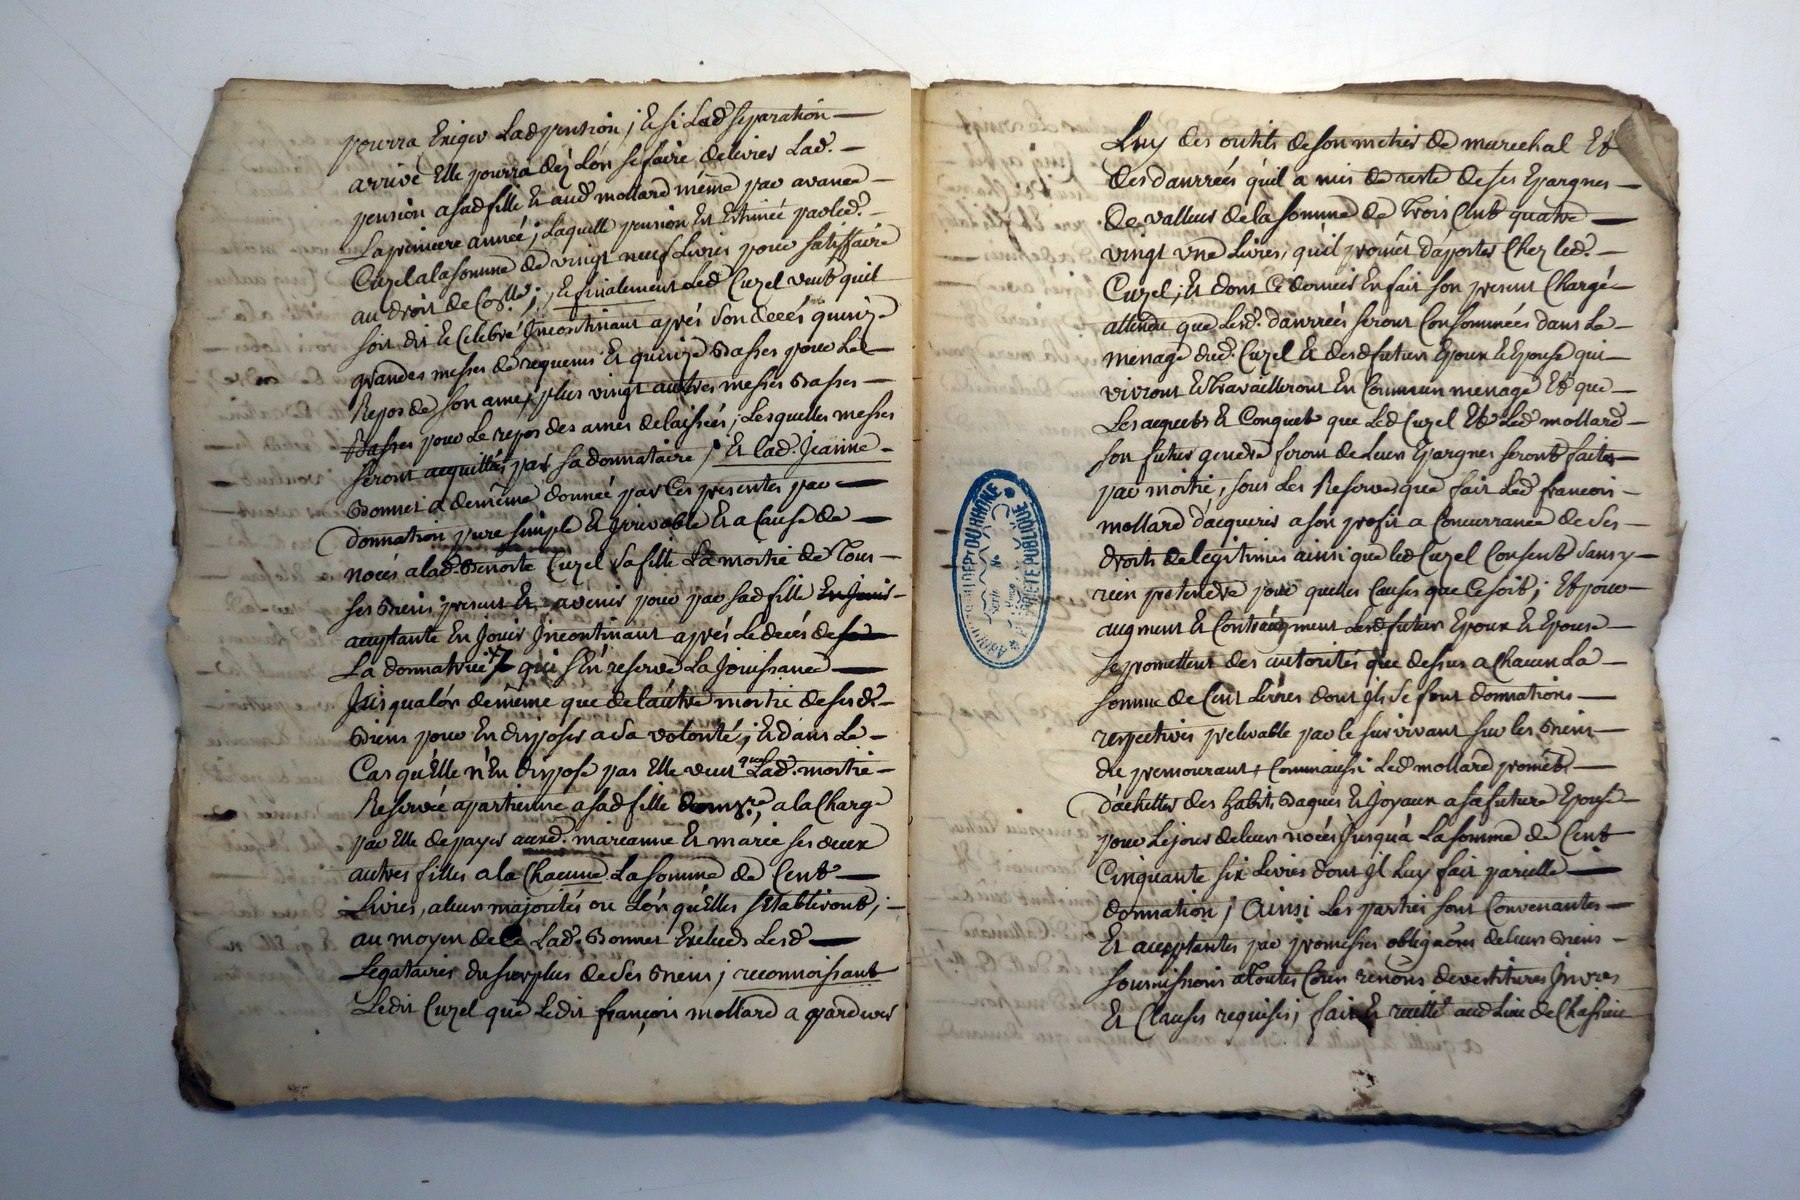 pourra Exiger Lad pension ; Et si Lad separation
arrive Elle pourra déz Lór se faire delivrer Lad.
pension a sad fille Et aud mollard méme par avance
La premiere année ; Laquelle pension Est Estimée par led.
Cuzel a la somme de vingt neuf Livres pour satisfaire
au droit de Co.lle ; Et finalement Led Cuzel veut quil
soit dit Et Celebré Incontinant aprés son decés quinze
grandes messes de requems Et quinze Basses pour Le
Repos de son ame, plus vingt autres messes Basses
Basses pour Le repos des ames delaissées ; Lesquelles messes
seront acquittées par sa donnataire ; Et Lad. Jeanne
Bonnet a deméme donnée par Ces presentes par
donnation pure simple Et Irrivocable Et a Cause de
noces a lad. Benoite Cuzel sa fille La moitié de Tous
ses Biens present Et avenir pour par sad fille En Jouir
aceptante En Jouir Incontinant aprés Le decés de
La donnatrice qui s'En reserve La Jouissance
Jusqualór deméme que de Láutre moitié de sesd.
Biens pour En disposer a sa volonté ; Et dans Le
Cas qu'Elle n'En dispose pas Elle veut que Lad. moitié
Reservée apartienne a sad fille a la Charge
par Elle de payer auxd. marianne Et marie ses deux
autres filles a la Chacune La somme de Cent
Livres, a leur majorités ou Lór qu'Elles s'Etabliront ;
au moyen de Ce Lad. Bonnet Exclud Lesd
Légataires du surplus de ses Biens ; reconnoissant
Ledit Cuzel que Ledit françois mollard a pardevers
Luy des outils de son metier de marechal Et
des danrrées qu'il a mis de reste de ses Epargnes
de valleur de la somme de Trois Cent quatre
vingt une Livres, qu'il promet d'aporter Chez led.
Cuzel ; Et dont Ce dernier En fait son present Chargé
attendu que Lesd. danrrées seront Consommées dans Le
menage dud. Cuzel Et desd futur Epoux Et Epouse qui
vivront Et Travailleront En Commun menage Et que
Les acquets Et Conquets que Led Cuzel Et Led mollard
son futur gendre feront de Leur Epargnes seront faites
par moitié, sous Les Reserves que fait Led françois
mollard d'acquerir a son profit a Concurrance de ses
droits de legitimes ainsi que led Cuzel Consent sans y
rien pretendre pour quelles Causes que Ce soit ; Et pour
augment Et Contréaugment Lesd futur Epoux Et Epouse
se promettent des autorités que dessus a Chacun La
somme de Cent Livres dont Ils se font donnations
respectives prelevable par le survivant sur les Biens
du premourant ; Comm'aussi Led mollard promet
d'achetter des habits Bagues Et Joyaux a sa future Epouse
pour Le jour de leur nóces Jusqu'a La somme de Cent
Cinquante six Livres dont Il Luy fait pareille
donnation ; Ainsi Les parties sont Convenantes
Et acceptantes par promesses obligaons de leurs Biens
soumissions a Toutes Cours renons devestitures Inv.res
Et Clauses requises ; fait Et recitté aud Lieu de Chassieu